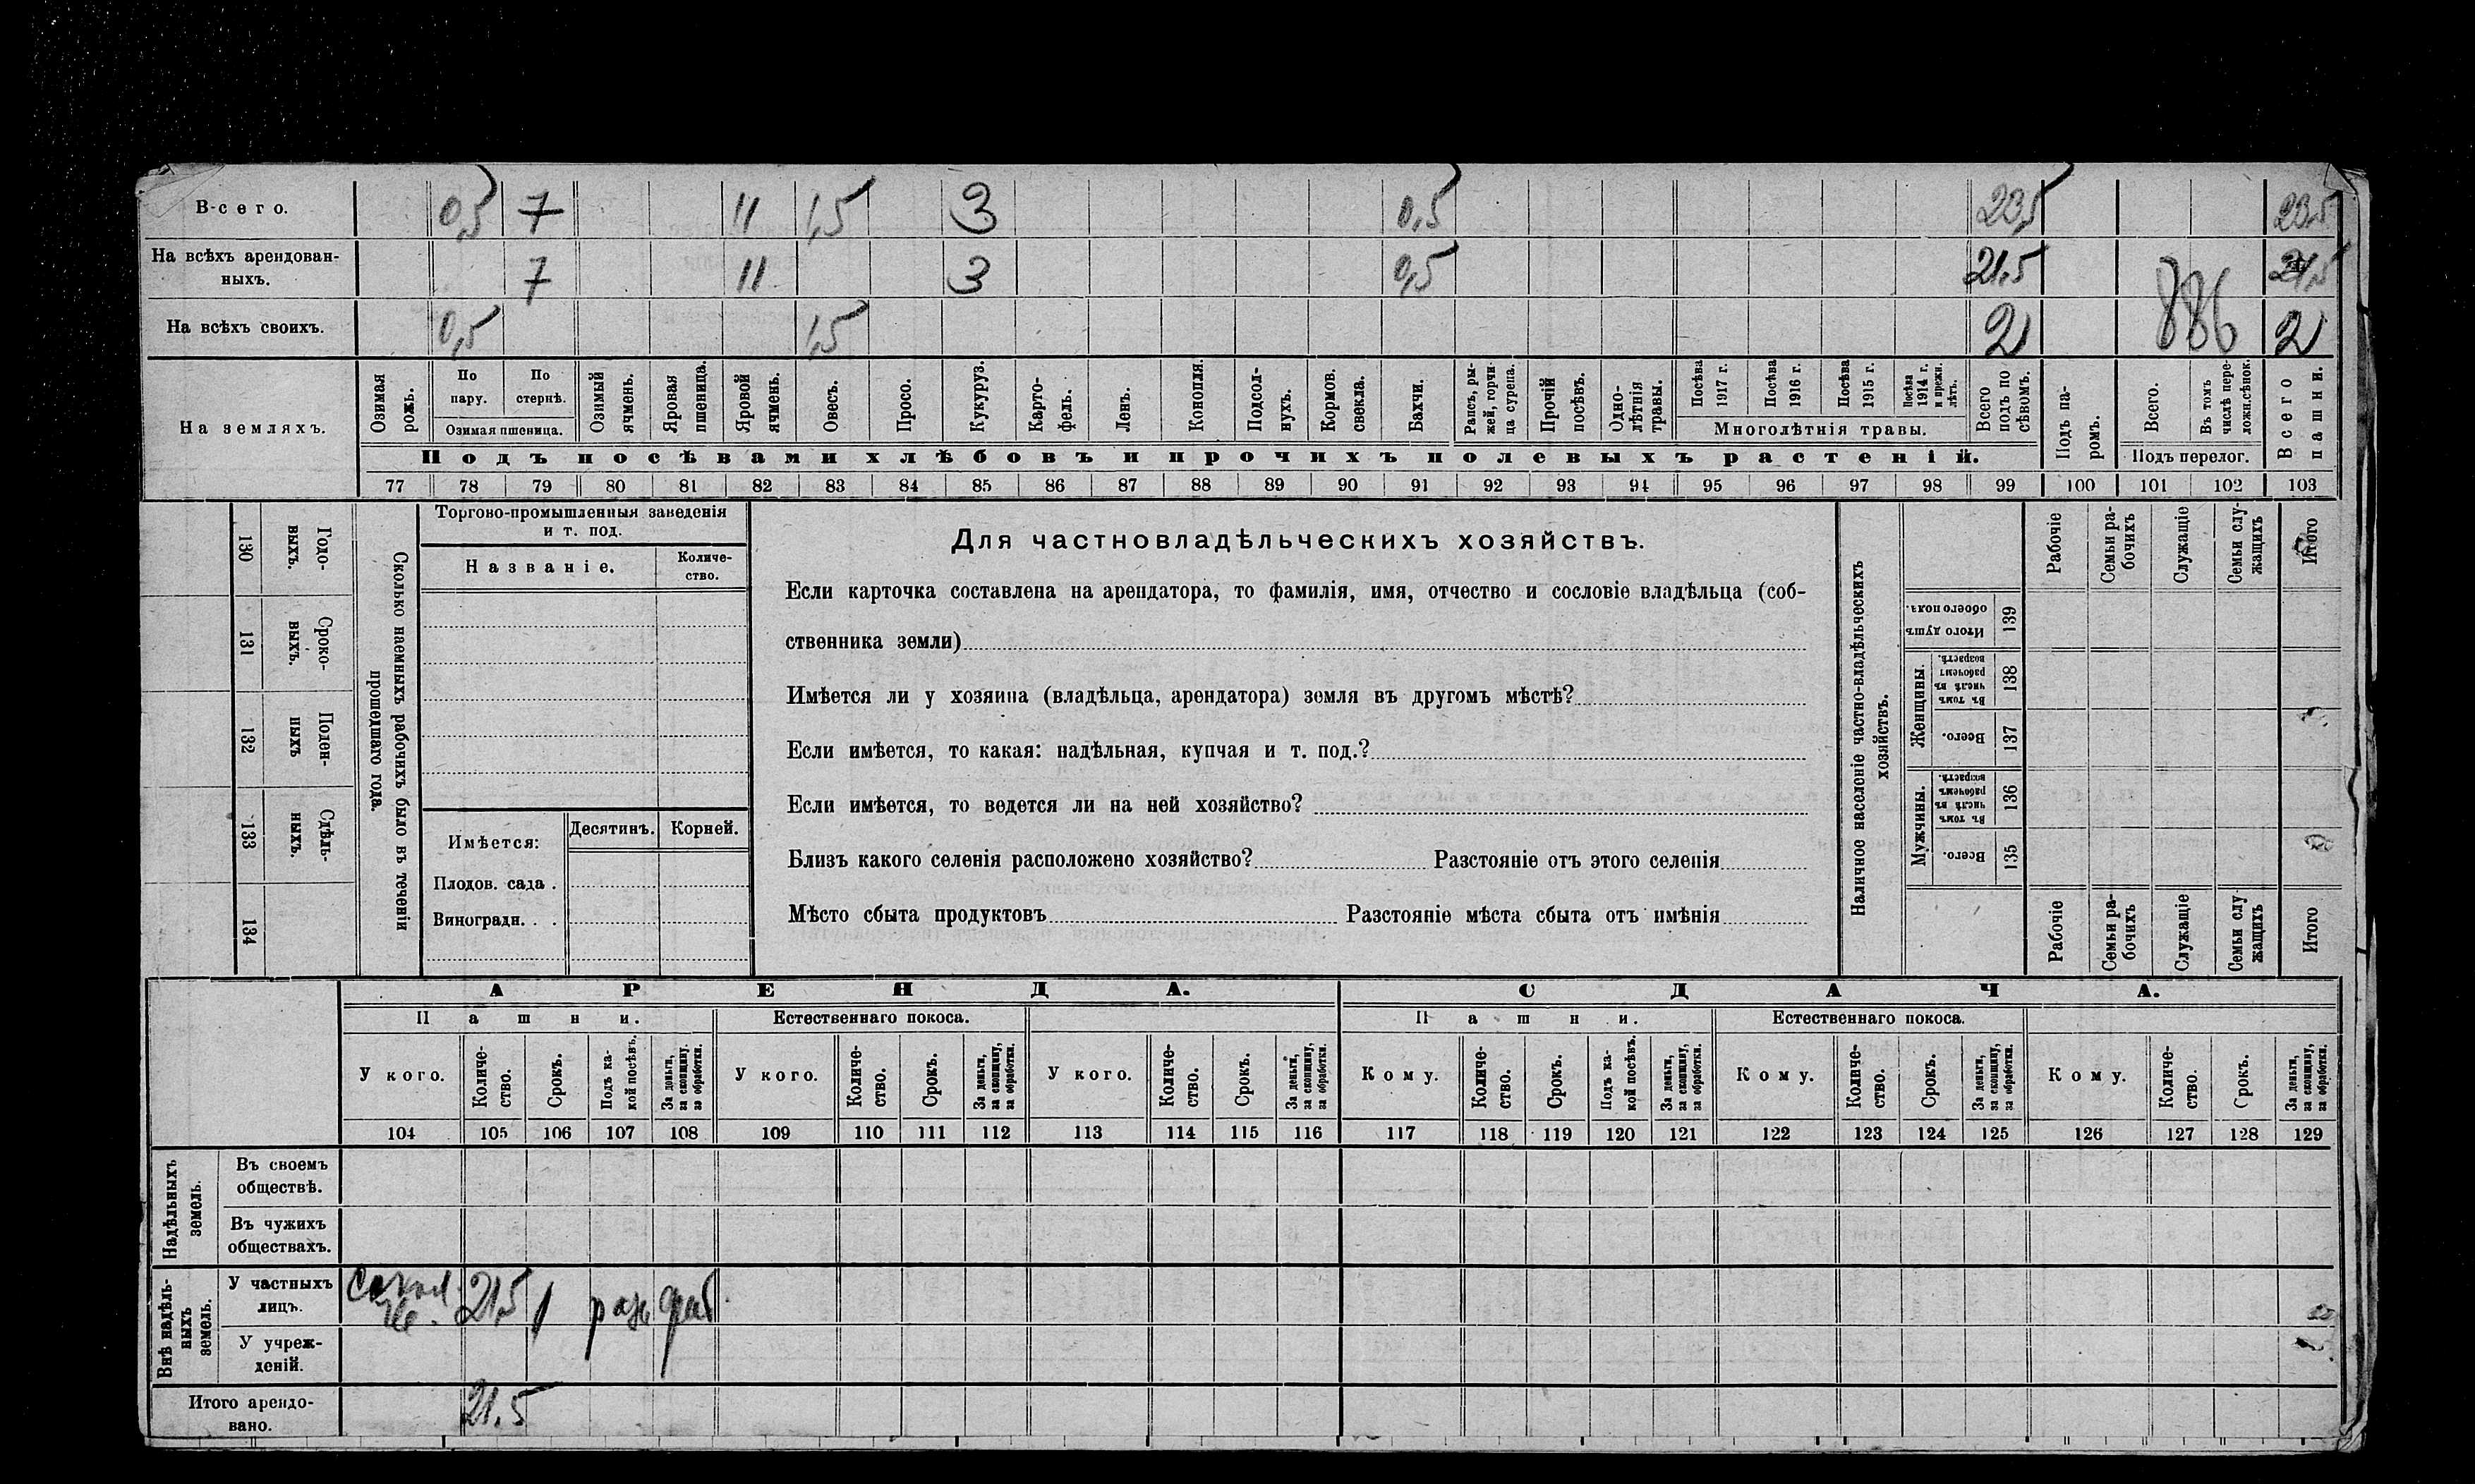 В-сего. 0,5 7 11 1,5 3 0,5 23,5 23,5
На всѣхъ арендован-
ныхъ. 7 11 3 0,5 21,5 21,5
На всѣхъ своихъ. 0,5 1,5 2 886 2
На земляхъ.
Озимая рожь.
По пару.
По стернѣ.
Озимая пшеница.
Озимый ячмень.
Яровая пшеница.
Яровой ячмень.
Овесъ.
Просо.
Кукуруз.
Карто-
фель.
Ленъ.
Конопля.
Подсол-
нухъ.
Кормов. свекла.
Бахчи.
Рапсъ, ры-
жей, горчи-
ца сурепа.
Прочій посѣвъ.
Одно-
лѣтнія травы.
Посѣва 1917 г.
Посѣва 1916 г.
Посѣва 1915 г.
Посѣва 1914 г. и прежн. лѣтъ.
Многолѣтнія травы.
Всего подъ по
сѣвомъ.
Подъ па-
ромъ.
Всего.
Въ томъ числѣ пере-
ложн.сѣнок.
Подъ перелог.
Всего пашни.
Подъ посѣвами хлѣбовъ и прочихъ полевыхъ растеній.
77 78 79 80 81 82 83 84 85 86 87 88 89 90 91 92 93 94 95 96 97 98 99 100 101 102 103
130 Годо-
ныхъ.
131 Сроко-
выхъ.
132 Поден-
ныхъ
133 Сдѣль-
ныхъ.
134
Сколько наемныхъ рабочихъ было въ теченіи
прошедшаго года.
Торгово-промышленныя заведенія
и т. под.
Названіе.
Количе-
ство.
Имѣется:
Десятинъ. Корней.
Плодов. сада .
Виноградн. . .
Для частновладѣльческихъ хозяйствъ.
Если карточка составлена на арендатора, то фамилія, имя, отчество и сословіе владѣльца (соб-
ственника земли)
Имѣется ли у хозяина (владѣльца, арендатора) земля въ другомъ мѣстѣ?
Если имѣется, то какая: надѣльная, купчая и т. под.?
Если имѣется, то ведется ли на ней хозяйство?
Близъ какого селенія расположено хозяйство? Разстояніе отъ этого селенія
Мѣсто сбыта продуктовъ Разстояніе мѣста сбыта отъ имѣнія
Наличное населеніе частно-владѣльческихъ
хозяйствъ.
Рабочіе
Семьи ра-
бочихъ
Служащіе
Семьи слу-
жащихъ
Итого
Итого душъ обоего пола. 139
Женщины.
Въ томъ числѣ въ рабочемъ возрастѣ. 138
Всего. 137
Мужчины.
Въ томъ числѣ въ рабочемъ возрастѣ. 136
Всего. 135
Рабочіе
Семьи ра-
бочихъ
Служащіе
Семьи слу
жащихъ
Итого
АРЕНДА. СДАЧА.
Пашни. Естественнаго покоса. Пашни. Естественнаго покоса.
У кого.
Количе-
ство.
Срокъ.
Подъ ка-
кой посѣвъ.
За деньги,
за скопщину,
за обработки.
У кого.
Количе-
ство.
Срокъ.
За деньги,
за скопщину,
за обработки.
У кого.
Количе-
ство.
Срокъ.
За деньги,
за скопщину,
за обработки.
Кому.
Количе-
ство.
Срокъ.
Подъ ка-
кой посѣвъ.
За деньги,
за скопщину,
за обработки.
Кому.
Количе-
ство.
Срокъ.
За деньги,
за скопщину,
за обработки.
Кому.
Количе-
ство.
Срокъ.
За деньги,
за скопщину,
за обработки.
104 105 106 107 108 109 110 111 112 113 114 115 116 117 118 119 120 121 122 123 124 125 126 127 128 129
Надѣльныхъ
земель.
Въ своемъ
обществѣ.
Въ чужихъ
обществахъ.
Внѣ надѣль-
ныхъ
земель.
У частныхъ
лицъ. 21,5 1
У учреж-
деній.
Итого арендо-
вано. 21.5